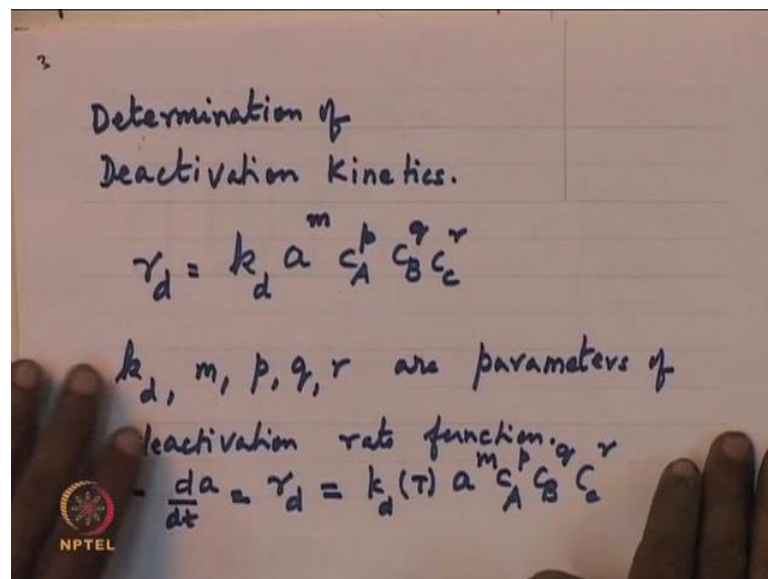 3
Determination of
Deactivation Kinetics.
r_d = k_d a^m C_A^p C_B^q C_c^r
k_d, m, p, q, r are parameters of
deactivation rate function.
- da/dt = r_d = k_d(T) a^m C_A^p C_B^q C_c^r
NPTEL